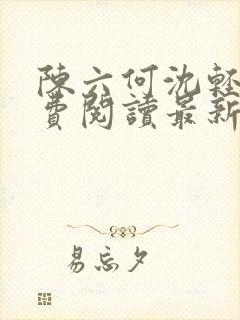 陳六何沈輕
費閱讀最新
易忘夕